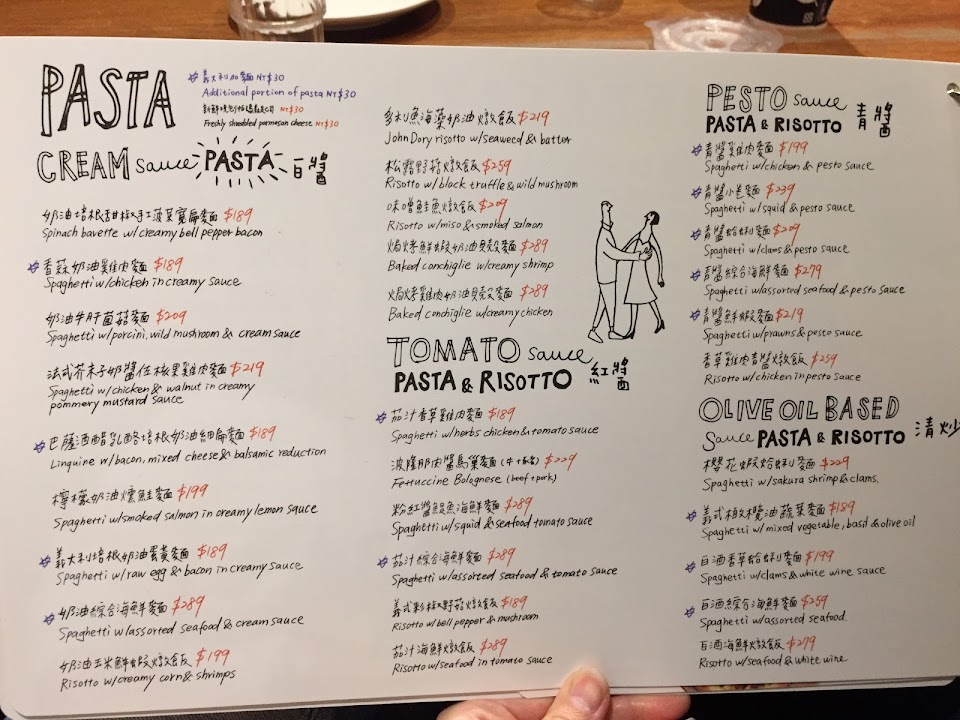 PASTA
#義大利加麵 NT$30
Additional portion of pasta NT$30
NT$30
Freshly shredded parmesan cheese NT$30
CREAM sauce PASTA 白醬
奶油培根甜椒手工菠菜寬扁麵 $189
Spinach bavette w/creamy bell pepper bacon
#香蒜奶油雞肉麵 $189
Spaghetti w/chicken in creamy sauce
奶油牛肝菌菇麵 $209
Spaghetti w/porcini, wild mushroom & cream sauce
法式芥末籽奶醬佐核果雞肉麵 $219
Spaghetti w/chicken & walnut in creamy
pommery mustard sauce
#巴薩酒醋乳酪培根奶油細扁麵 $189
Linguine w/bacon, mixed cheese & balsamic reduction
檸檬奶油燻鮭麵 $199
Spaghetti w/smoked salmon in creamy lemon sauce
#義大利培根奶油蛋黃麵 $189
Spaghetti w/raw egg & bacon in creamy sauce
#奶油綜合海鮮麵 $289
Spaghetti w/assorted seafood & cream sauce
奶油玉米鮮蝦燉飯 $199
Risotto w/creamy corn & shrimps
多利魚海藻奶油燉飯 $219
John Dory risotto w/seaweed & batter
松露野菇燉飯 $259
Risotto w/black truffle & wild mushroom
味噌鮭魚燉飯 $209
Risotto w/miso & smoked salmon
焗烤鮮蝦奶油貝殼麵 $289
Baked conchiglie w/creamy shrimp
焗烤雞肉奶油貝殼麵 $289
Baked conchiglie w/creamy chicken
TOMATO sauce
PASTA & RISOTTO 紅醬
#茄汁香草雞肉麵 $189
Spaghetti w/herbs chicken & tomato sauce
波隆那肉醬鳥巢麵 (牛+豬) $229
Fettuccine Bolognese (beef + pork)
粉紅醬鯤魚海鮮麵 $289
Spaghetti w/squid & seafood tomato sauce
#茄汁綜合海鮮麵 $289
Spaghetti w/assorted seafood & tomato sauce
義式彩椒野菇燉飯 $189
Risotto w/bell pepper & mushroom
茄汁海鮮燉飯 $289
Risotto w/seafood in tomato sauce
PESTO sauce
PASTA & RISOTTO 青醬
#青醬雞肉麵 $199
Spaghetti w/chicken & pesto sauce
#青醬小卷麵 $239
Spaghetti w/squid & pesto sauce
#青醬蛤蜊麵 $209
Spaghetti w/clams & pesto sauce
#青醬綜合海鮮麵 $279
Spaghetti w/assorted seafood & pesto sauce
#青醬鮮蝦麵 $219
Spaghetti w/prawns & pesto sauce
香草雞肉青醬燉飯 $259
Risotto w/chicken in pesto sauce
OLIVE OIL BASED
Sauce PASTA & RISOTTO 清炒
櫻花蝦蛤蜊麵 $229
Spaghetti w/sakura shrimp & clams.
#義式橄欖油蔬菜麵 $189
Spaghetti w/mixed vegetable, basil & olive oil
#白酒香草蛤蜊麵 $199
Spaghetti w/clams & white wine sauce
#白酒綜合海鮮麵 $259
Spaghetti w/assorted seafood.
白酒海鮮燉飯 $279
Risotto w/seafood & white wine